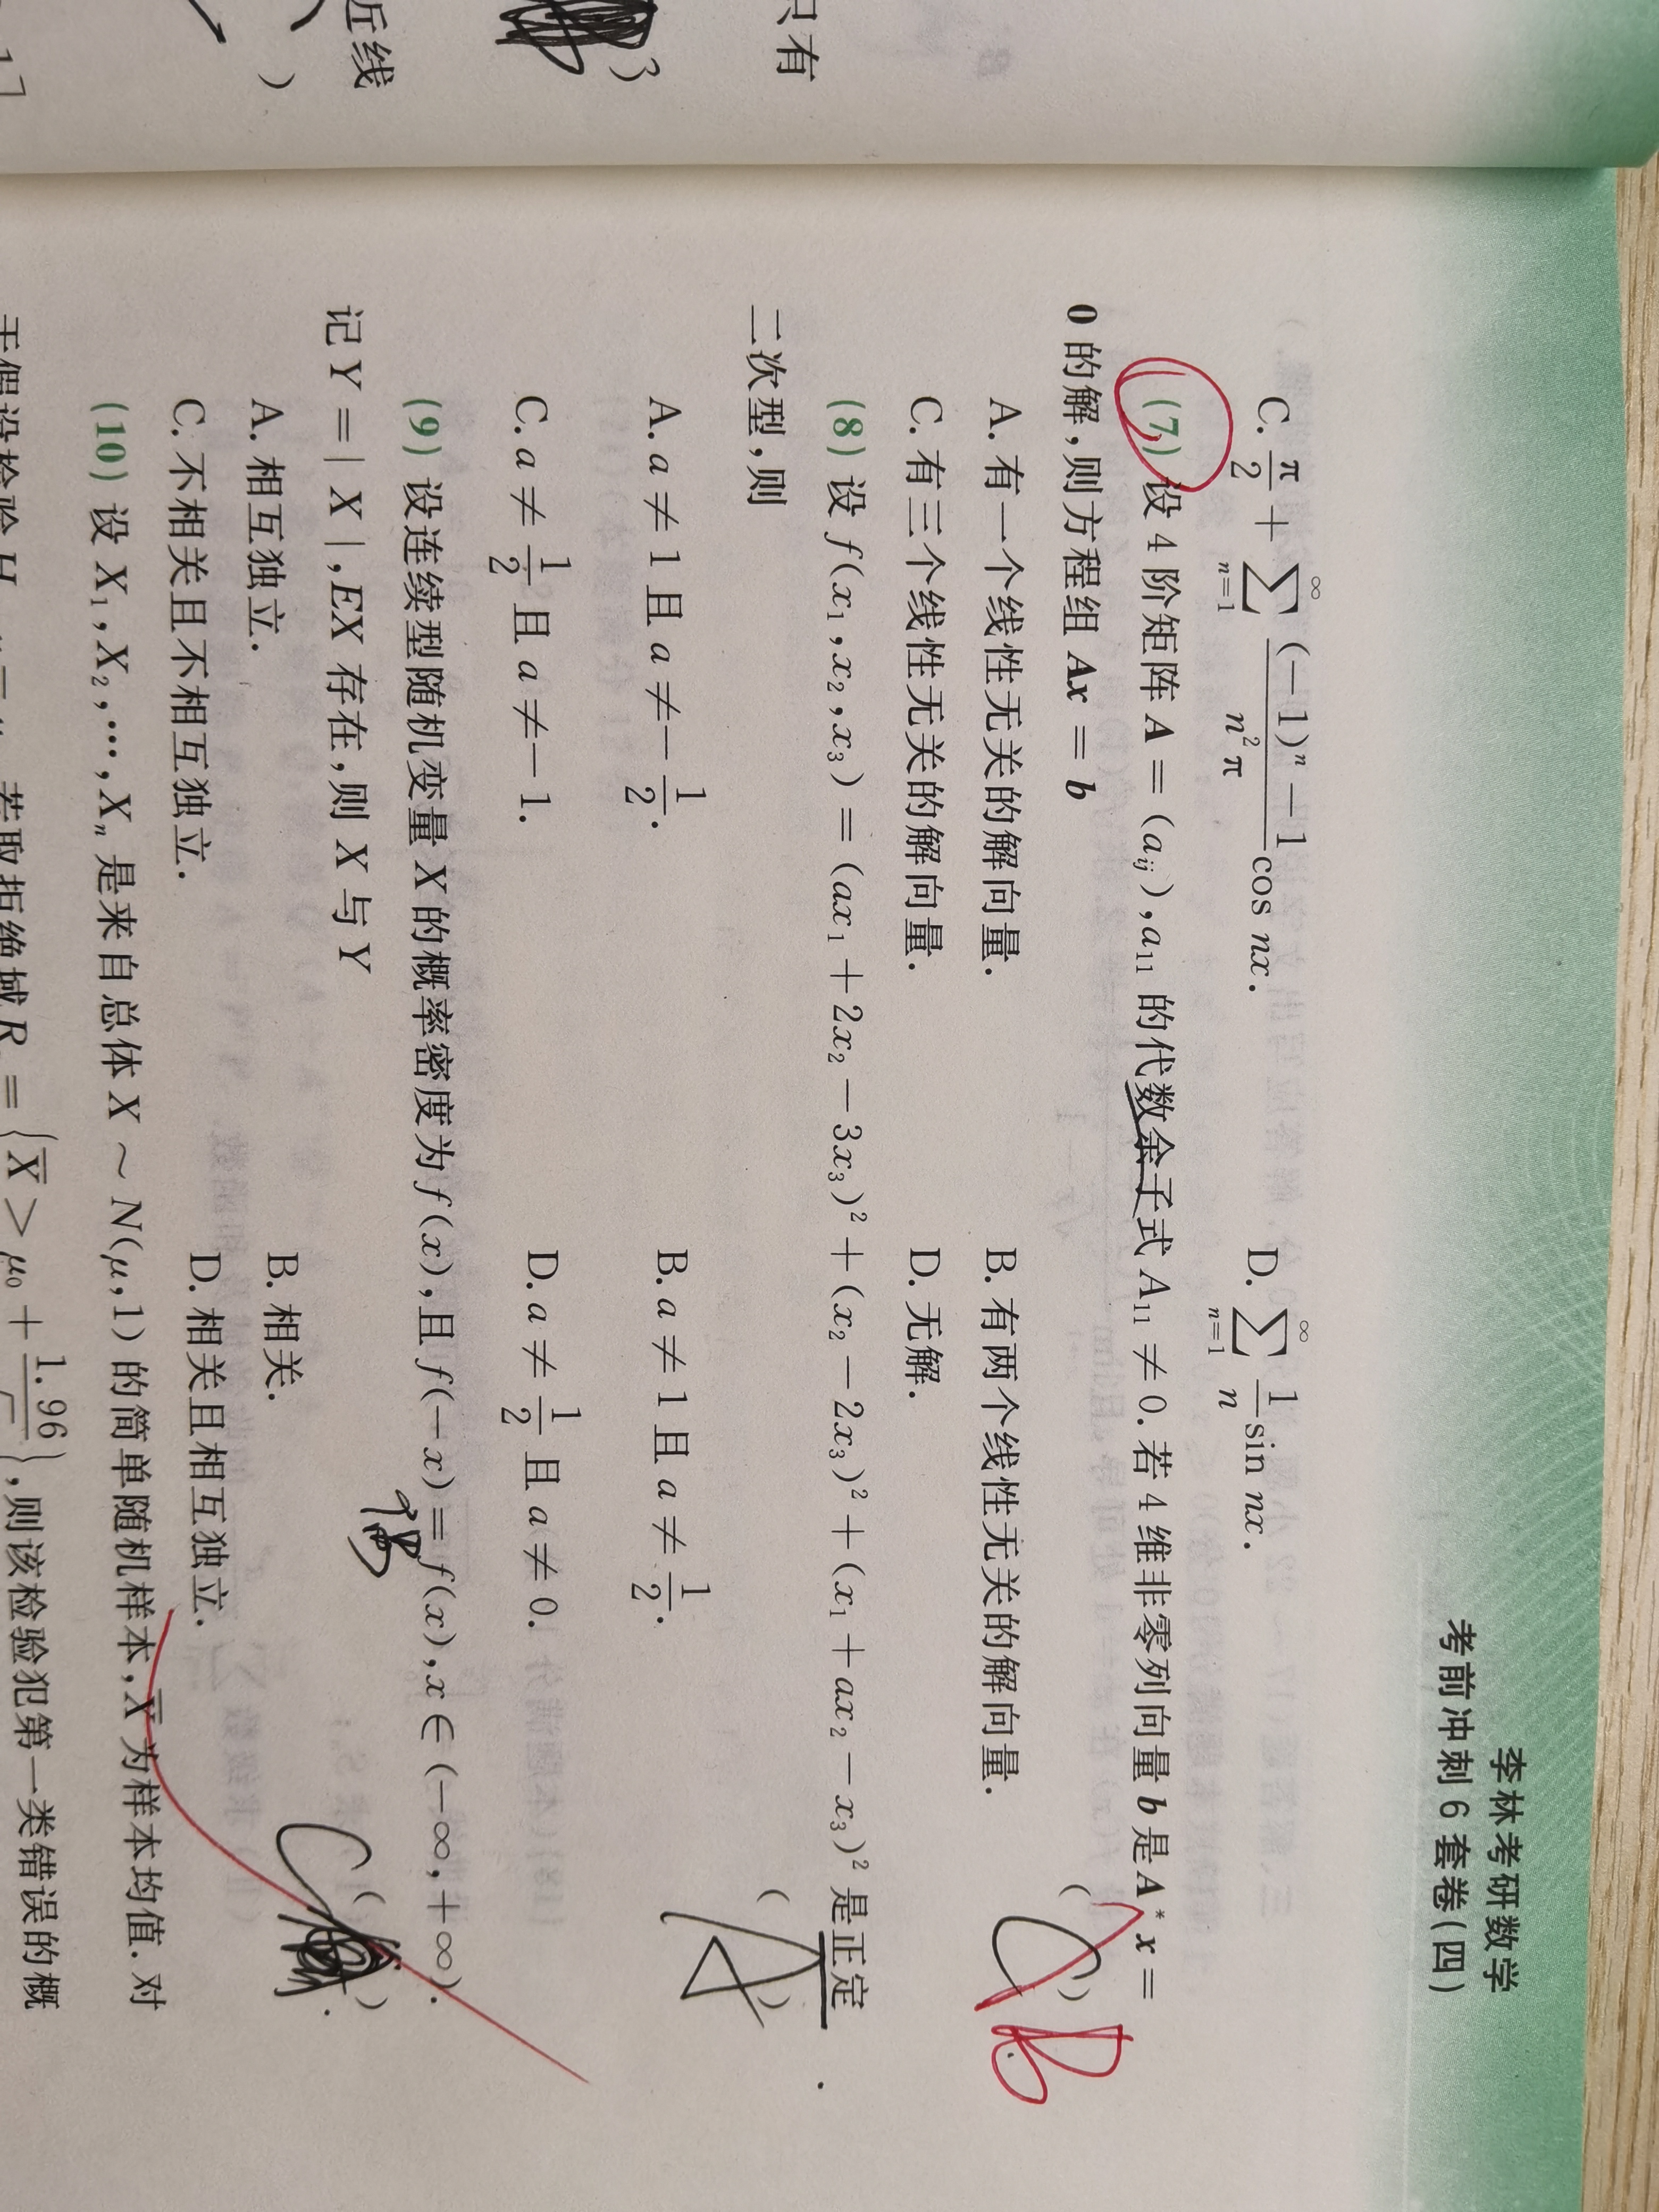 李林考研数学
考前冲刺 6 套卷(四)
C. π/2 + ∑_{n=1}^{∞} ((-1)ⁿ - 1)/(n²π) cos nx.
D. ∑_{n=1}^{∞} 1/n sin nx.
(7) 设 4 阶矩阵 A = (a_{ij}), a₁₁ 的代数余子式 A₁₁ ≠ 0. 若 4 维非零列向量 b 是 A*x =
0 的解,则方程组 Ax = b
( C ) B
A. 有一个线性无关的解向量.
B. 有两个线性无关的解向量.
C. 有三个线性无关的解向量.
D. 无解.
(8) 设 f(x₁,x₂,x₃) = (ax₁ + 2x₂ - 3x₃)² + (x₂ - 2x₃)² + (x₁ + ax₂ - x₃)² 是正定
二次型,则
( A )
A. a ≠ 1 且 a ≠ - 1/2.
B. a ≠ 1 且 a ≠ 1/2.
C. a ≠ 1/2 且 a ≠ - 1.
D. a ≠ 1/2 且 a ≠ 0.
(9) 设连续型随机变量 X 的概率密度为 f(x),且 f(-x) = f(x), x ∈ (-∞,+∞).
偶
记 Y = | X |, EX 存在,则 X 与 Y
( C )
A. 相互独立.
B. 相关.
C. 不相关且不相互独立.
D. 相关且相互独立.
(10) 设 X₁,X₂,…,Xₙ 是来自总体 X ~ N(μ,1) 的简单随机样本, X̄ 为样本均值. 对
若取拒绝域 R = {X̄ > μ₀ + 1.96/ },则该检验犯第一类错误的概
只有
近线